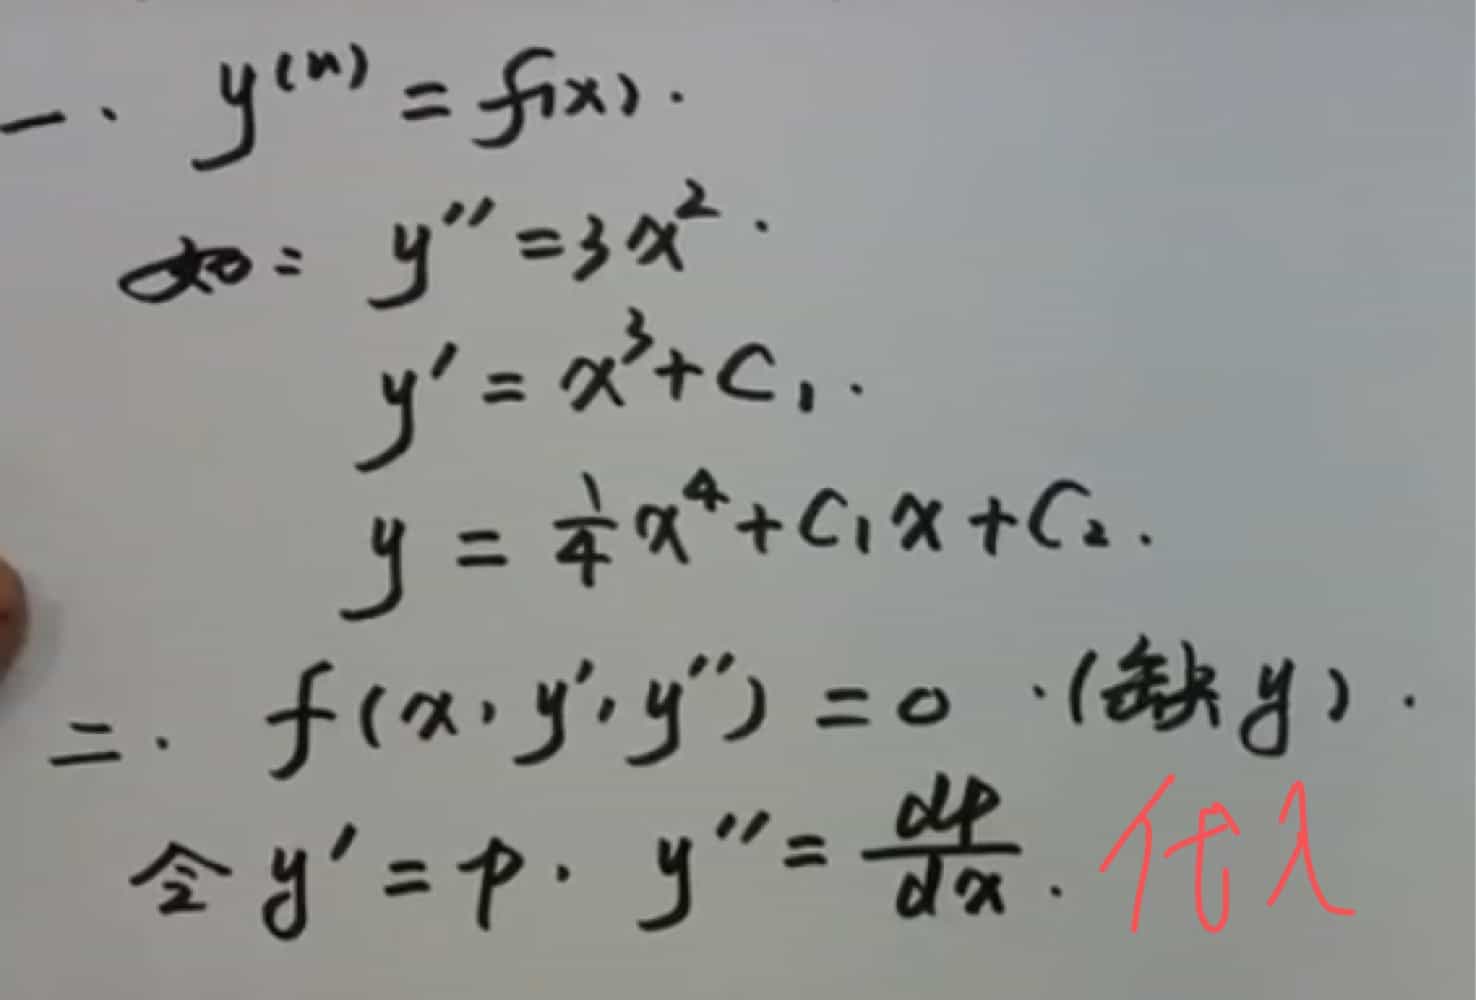 一. y⁽ⁿ⁾ = f(x).
如: y'' = 3x².
y' = x³ + C₁.
y = ¼x⁴ + C₁x + C₂.
二. f(x, y', y'') = 0. (缺y).
令 y' = p. y'' = dp/dx. 代入